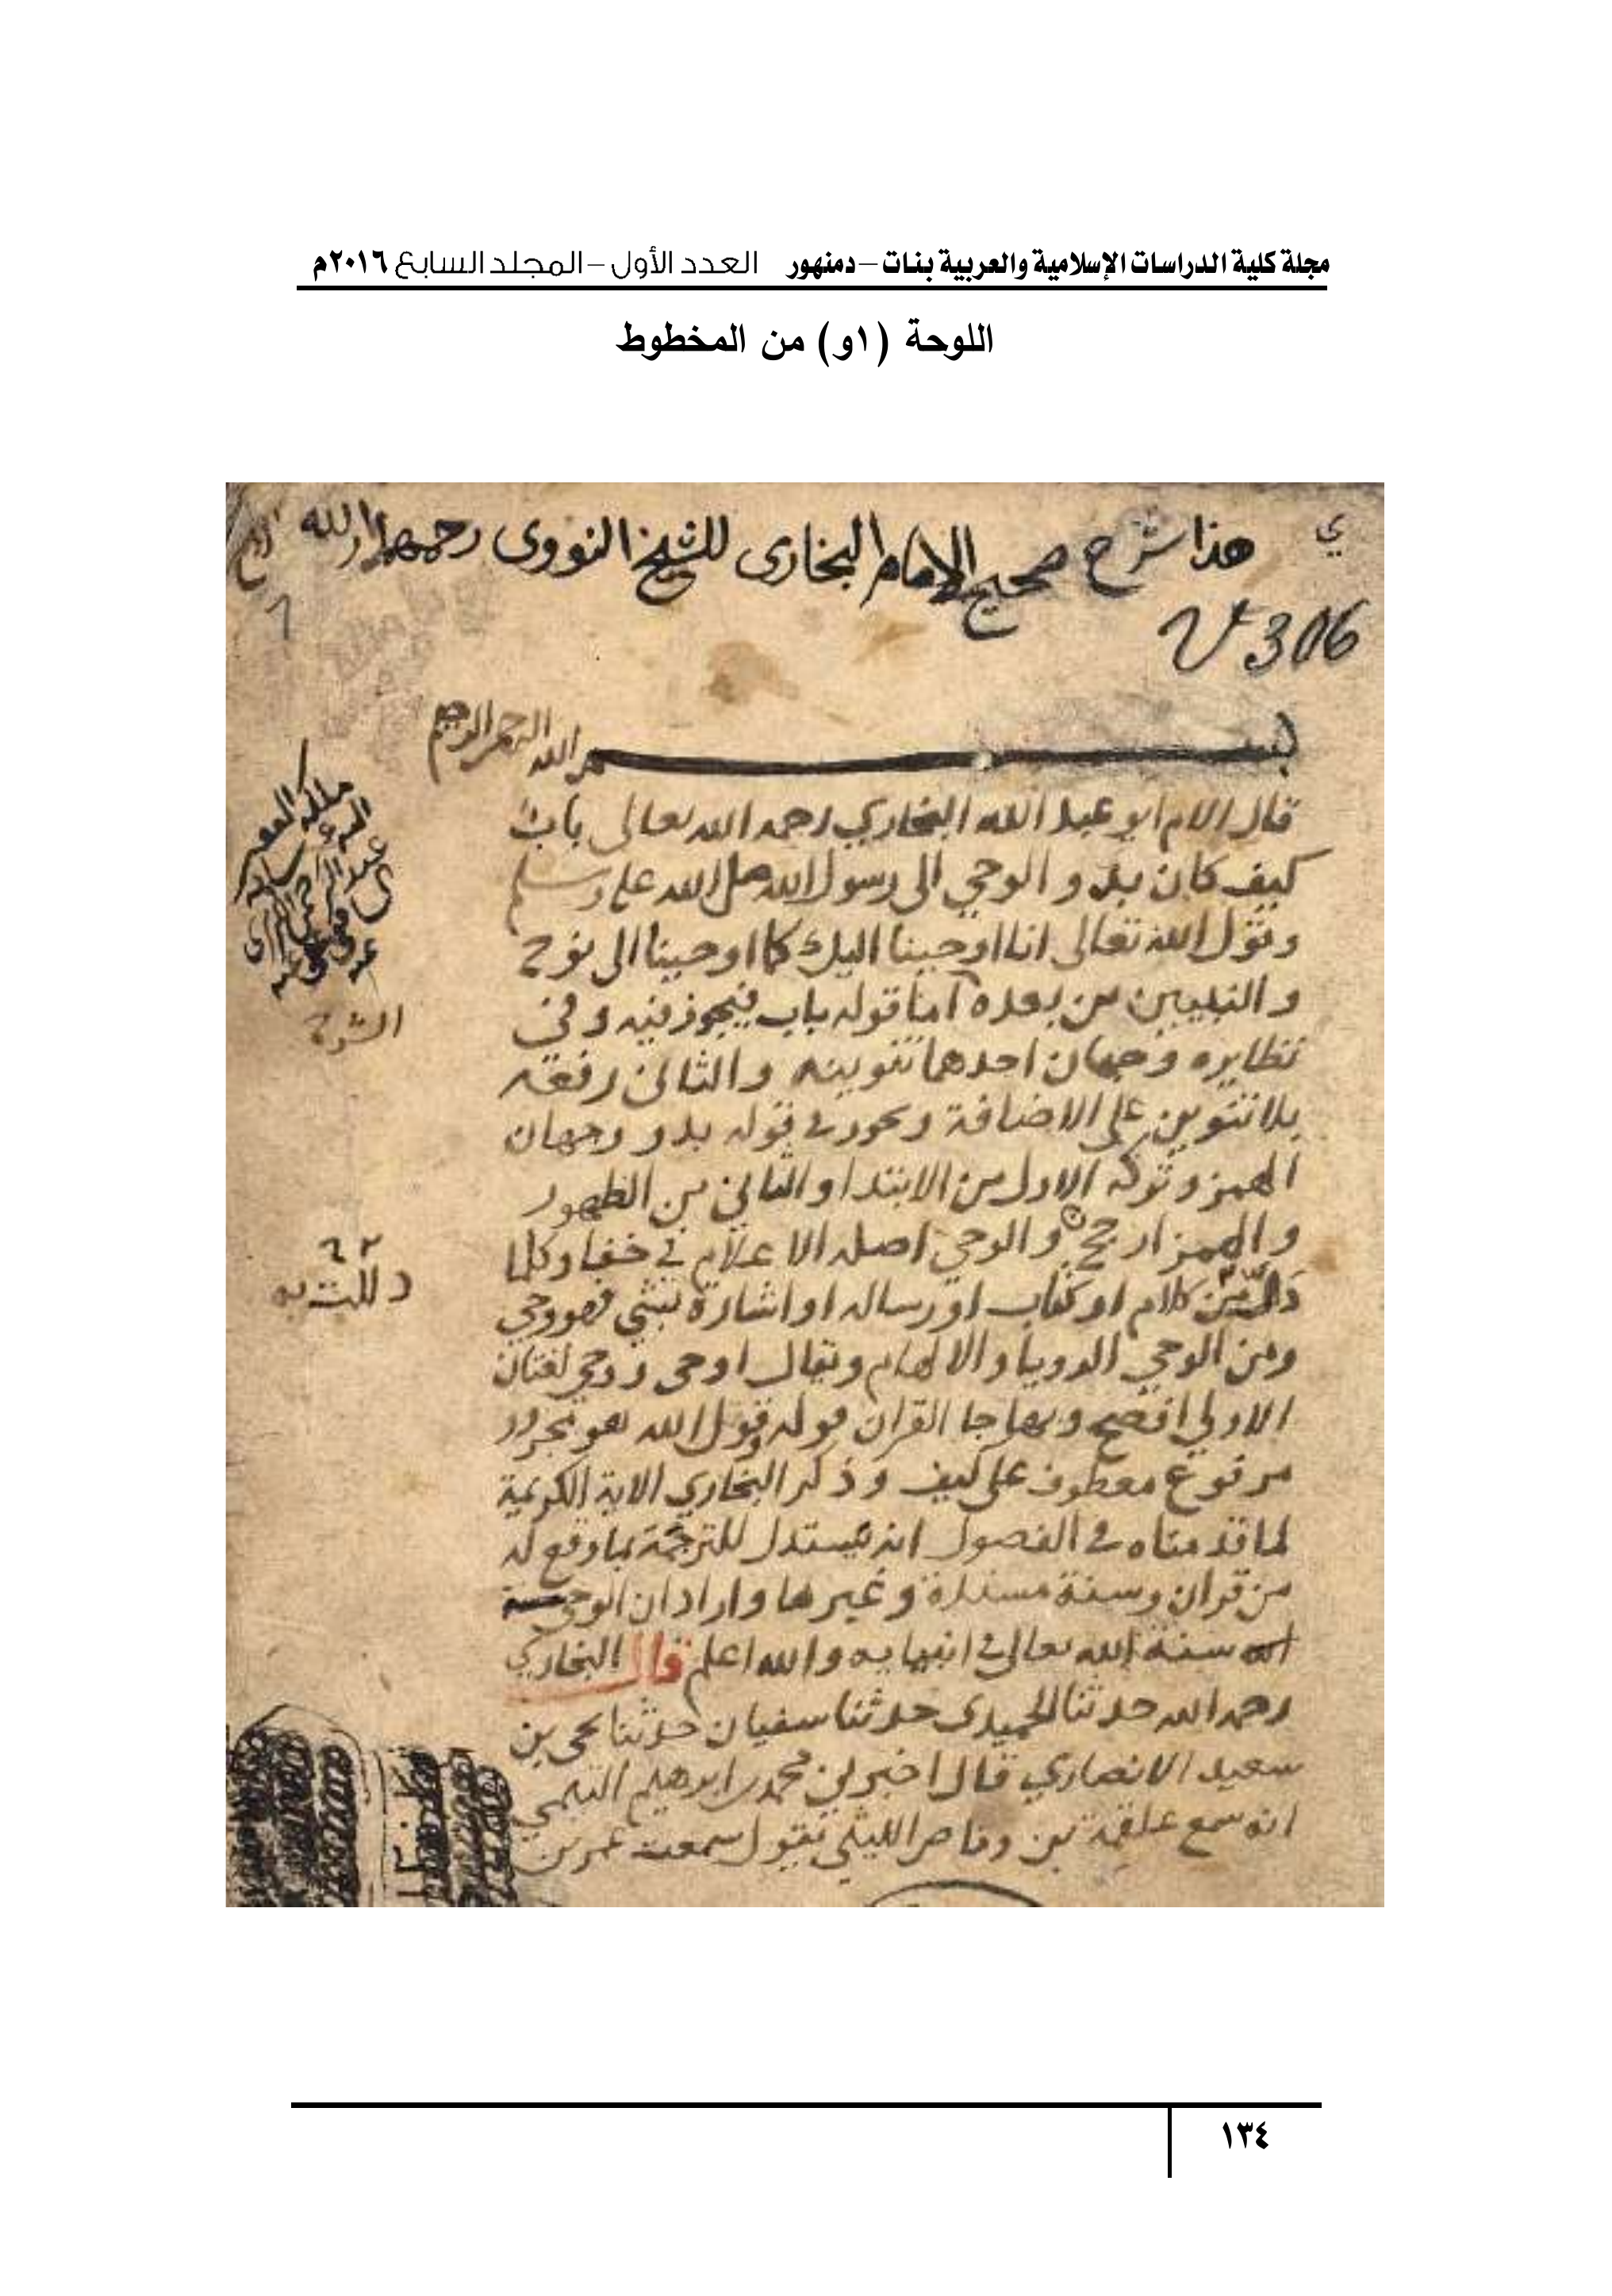 مجلة كلية الدراسات الإسلامية والعربية بنات – دمنهور العدد الأول – المجلد السابع ٢٠١٦م
اللوحة (١و) من المخطوط
ي
هذا شرح صحيح الامام البخارى للشيخ النووى رحمهما الله
306
بسم الله الرحمن الرحيم
قال الامام ابو عبد الله البخاري رحمه الله تعالى باب
كيف كان بدو الوحي الى رسول الله صلى الله عليه وسلم
وقول الله تعالى انا اوحينا اليك كما اوحينا الى نوح
والنبيين من بعده اما قوله باب فيجوز فيه وفي
نظايره وجهان احدهما تنوينه والثاني رفعه
بلا تنوين على الاضافة ويجوز في قوله بدو وجهان
الهمز وتركه الاول من الابتدا والثاني من الظهور
والهمز ارجح والوحي اصله الاعلام في خفا وكلما
من كلام او كتاب او رساله او اشارة بشي فهو وحي
ومن الوحي الرويا والالهام ويقال اوحى ووحي لغتان
الاولي افصح وبها جا القران قوله وقول الله هو مجرور
مرفوع معطوف على كيف وذكر البخاري الاية الكريمة
لما قدمناه في الفصول انه يستدل للترجمة بما وقع له
من قران وسنة مسندة وغيرها واراد ان الوحي
سنة الله تعالى في انبيايه والله اعلم قال البخاري
رحمه الله حدثنا الحميدى حدثنا سفيان حدثنا يحي بن
سعيد الانصاري قال اخبرني محمد بن ابرهيم التيمي
انه سمع علقمة بن وقاص الليثي يقول سمعت عمر بن
الشرح
١٣٤